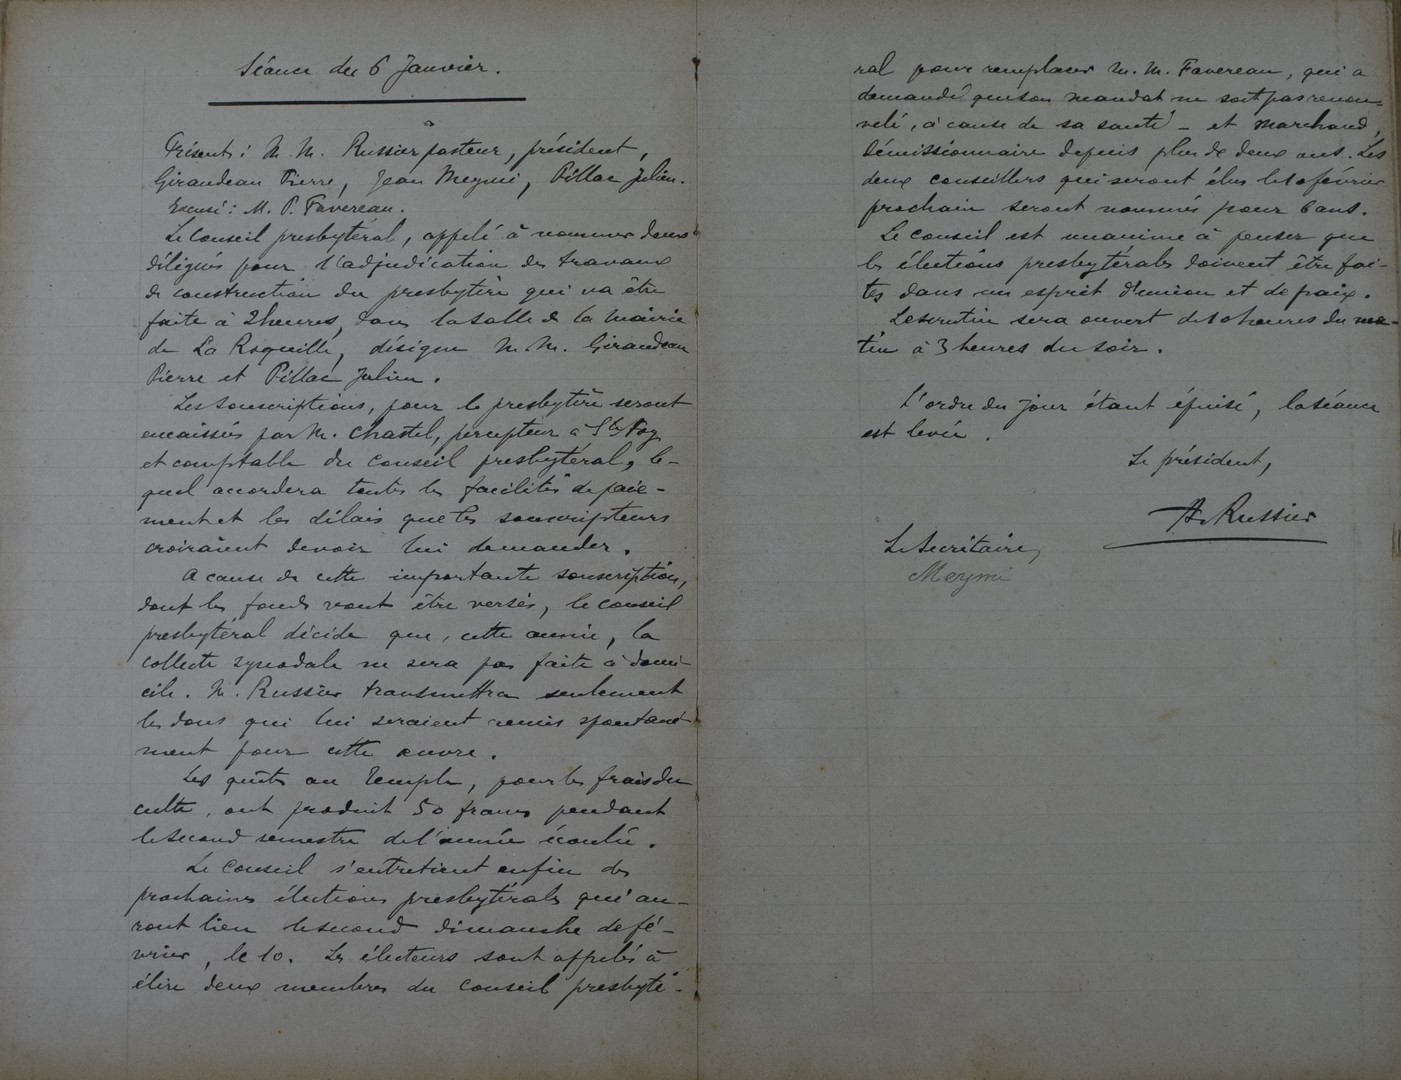 Séance du 6 Janvier.
Présents : M. M. Russier pasteur, président,
Girandeau Pierre, Jean Meymi, Pillac Julien.
Excusé : M. P. Favereau.
Le Conseil presbytéral, appelé à nommer deux
délégués pour l'adjudication des travaux
de construction du presbytère qui va être
faite à 2 heures, dans la salle de la mairie
de La Roquille, désigne M. M. Girandeau
Pierre et Pillac Julien.
Les souscriptions, pour le presbytère seront
encaissées par M. Chastel, percepteur à Ste Foy
et comptable du Conseil presbytéral, le-
quel accordera toutes les facilités de paie-
ment et les délais que les souscripteurs
croiraient devoir lui demander.
A cause de cette importante souscription,
dont les fonds vont être versés, le conseil
presbytéral décide que, cette année, la
collecte synodale ne sera pas faite à domi-
cile. M. Russier transmettra seulement
les dons qui lui seraient remis spontané-
ment pour cette œuvre.
Les quêtes au Temple, pour les frais du
culte, ont produit 50 francs pendant
le second semestre de l'année écoulée.
Le Conseil s'entretient enfin des
prochaines élections presbytérales qui au-
ront lieu le second dimanche de fé-
vrier, le 10. Les électeurs sont appelés à
élire deux membres du Conseil presbyté-
ral pour remplacer M. M. Favereau, qui a
demandé que son mandat ne soit pas renou-
velé, à cause de sa santé - et Marchand,
démissionnaire depuis plus de deux ans. Les
deux conseillers qui seront élus le 10 février
prochain seront nommés pour 6 ans.
Le Conseil est unanime à penser que
les élections presbytérales doivent être fai-
tes dans un esprit d'union et de paix.
Le scrutin sera ouvert de 10 heures du ma-
tin à 3 heures du soir.
L'ordre du jour étant épuisé, la séance
est levée.
Le président,
A. Russier
Le Secrétaire,
Meymi